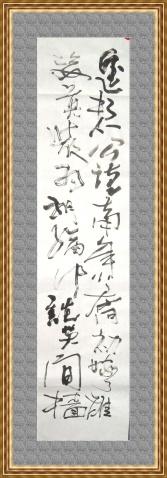 遙想公瑾當年小喬初嫁了雄
姿英發羽扇綸巾談笑間檣